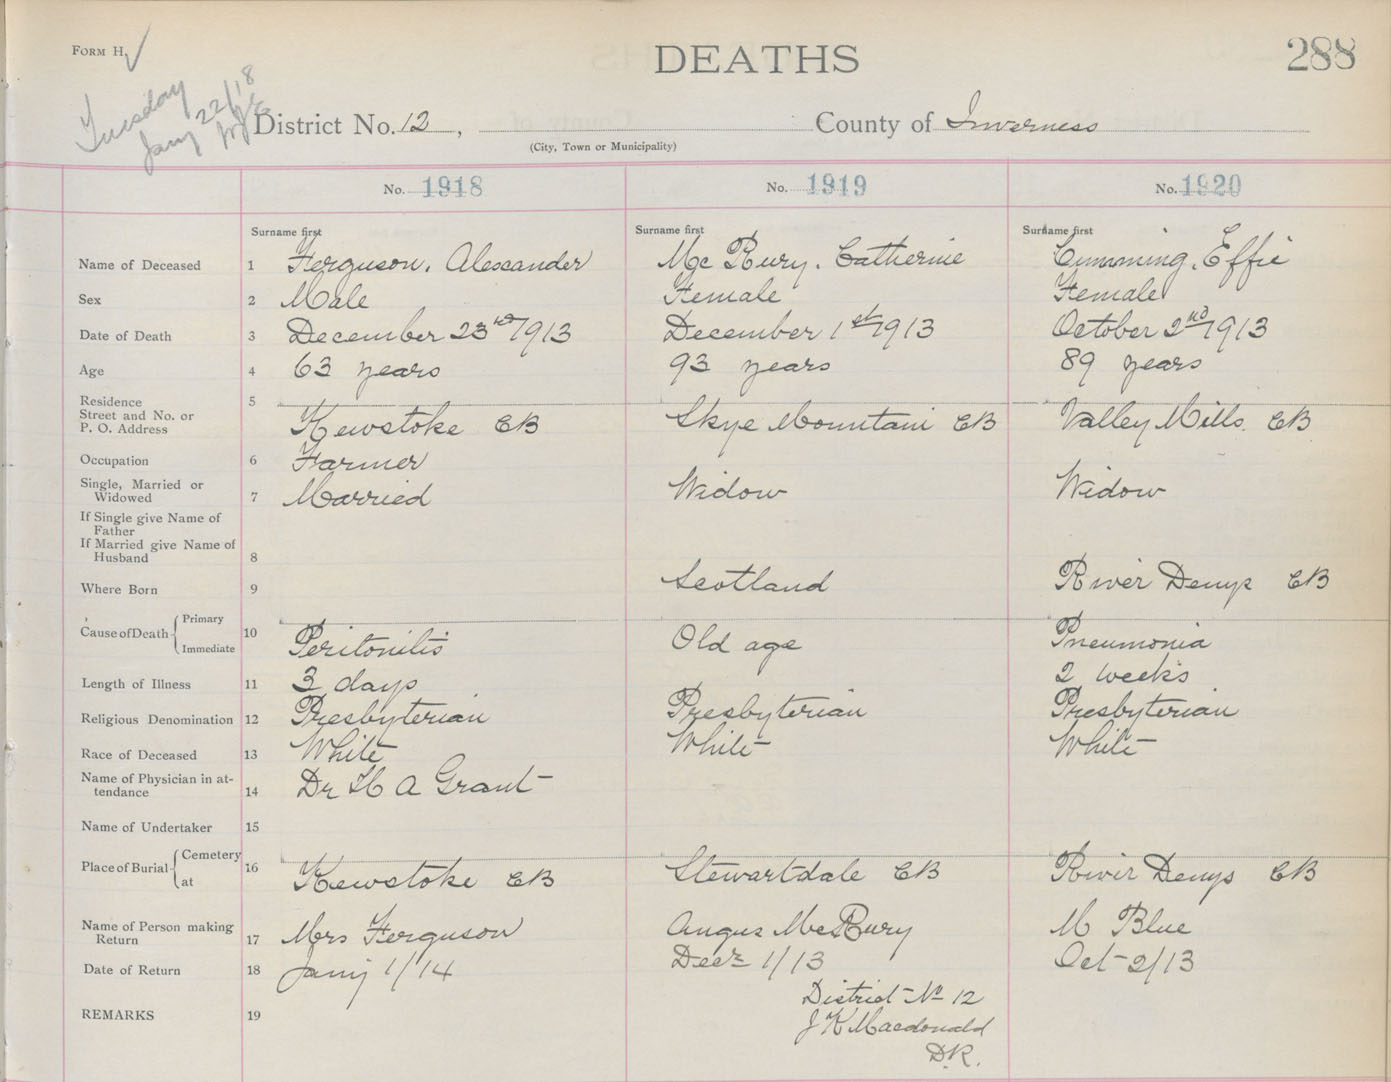 FORM H.
DEATHS
288
Tuesday
Jany 22/18
District No. 12,
County of Inverness
(City, Town or Municipality)
No. 1918
No. 1919
No. 1920
Surname first
Surname first
Surname first
Name of Deceased 1 Ferguson, Alexander McRury, Catherine Cumming, Effie
Sex 2 Male Female Female
Date of Death 3 December 23rd 1913 December 1st 1913 October 2nd 1913
Age 4 63 years 93 years 89 years
Residence 5
Street and No. or
P. O. Address Kewstoke CB Skye Mountain CB Valley Mills CB
Occupation 6 Farmer
Single, Married or
Widowed 7 Married Widow Widow
If Single give Name of
Father
If Married give Name of
Husband 8
Where Born 9 Scotland River Denys CB
Cause of Death Primary
10 Peritonitis Old age Pneumonia
Immediate
Length of Illness 11 3 days 2 weeks
Religious Denomination 12 Presbyterian Presbyterian Presbyterian
Race of Deceased 13 White White White
Name of Physician in at-
tendance 14 Dr H A Grant
Name of Undertaker 15
Place of Burial Cemetery
16
at Kewstoke CB Stewartdale CB River Denys CB
Name of Person making
Return 17 Mrs Ferguson Angus McRury M Blue
Date of Return 18 Jany 1/14 Decr 1/13 Oct 2/13
REMARKS 19
District No 12
J K Macdonald
D.R.